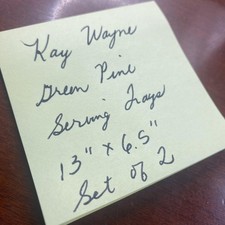 Kay Wayne
Green Pine
Serving Trays
13" x 6.5"
Set of 2